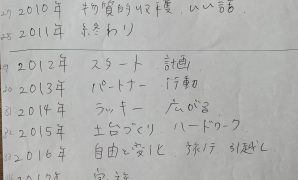 27 2010年 物質的収穫、いい話、
28 2011年 終わり
29 2012年 スタート 計画
30 2013年 パートナー 行動
31 2014年 ラッキー 広がる
32 2015年 土台づくり ハードワーク
33 2016年 自由と変化 旅行 引越し
2017年